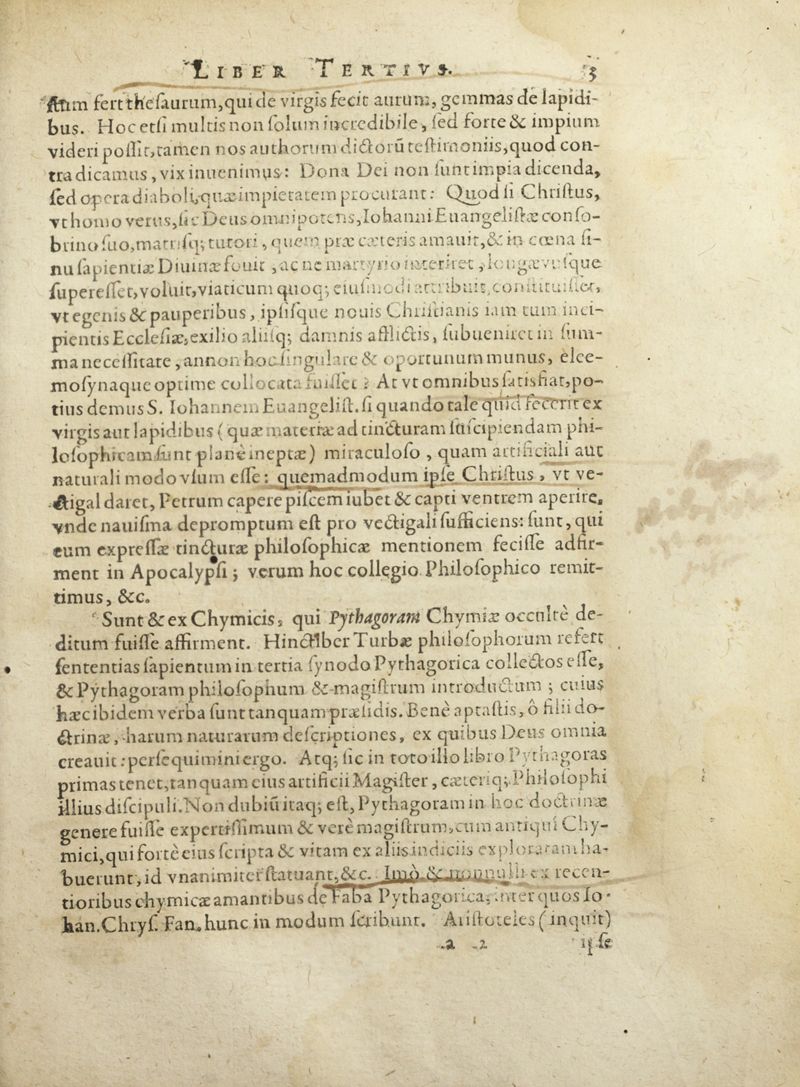 LIBER TERTIVS. 3
ſtum fert theſaurum,qui de virgis fecit aurum, gemmas de lapidi-
bus. Hoc etſi multis non ſolum incredibile, ſed forte & impium
videri poſſit,tamen nos authorum dictorũ teſtimoniis,quod con-
tra dicamus, vix inuenimus: Dona Dei non ſunt impia dicenda,
ſed opera diaboli,quæ impietatem procurant: Quod ſi Chriſtus,
vt homo verus,ſic Deus omnipotens,Iohanni Euangeliſtæ conſo-
brino ſuo,matriſq; tutori, quem præ cæteris amauit,& in cœna ſi-
nu ſapientiæ Diuinæ fouit, ac ne martyrio interiret, longævuſque
ſupereſſet,voluit,viaticum quoq; eiuſmodi attribuit,conſtituiſſet,
vt egenis & pauperibus, ipſiſque nouis Chriſtianis iam tum inci-
pientis Eccleſiæ,exilio aliiſq; damnis afflictis, ſubueniret in ſum-
ma neceſſitate, annon hoc ſingulare & oportunum munus, elee-
moſynaque optime collocata fuiſſet? At vt omnibus ſatisfiat,po-
tius demus S. Iohannem Euangeliſt. ſi quando tale quid fecerit ex
virgis aut lapidibus (quæ materiæ ad tincturam ſuſcipiendam phi-
loſophicam ſunt planè ineptæ) miraculoſo, quam artificiali aut
naturali modo vſum eſſe: quemadmodum ipſe Chriſtus, vt ve-
ctigal daret, Petrum capere piſcem iubet & capti ventrem aperire,
vnde nauiſma depromptum eſt pro vectigali ſufficiens: ſunt, qui
eum expreſſæ tincturæ philoſophicæ mentionem feciſſe adfir-
ment in Apocalypſi; verum hoc collegio Philoſophico remit-
timus, &c.
Sunt & ex Chymicis, qui Pythagoram Chymiæ occultè de-
ditum fuiſſe affirment. Hinc liber Turbæ philoſophorum refert
ſententias ſapientum in tertia ſynodo Pythagorica collectos eſſe,
& Pythagoram philoſophum & magiſtrum introductum; cuius
hæc ibidem verba ſunt tanquam præſidis. Benè aptaſtis, ô filii do-
ctrinæ, harum naturarum deſcriptiones, ex quibus Deus omnia
creauit: perſequimini ergo. Atq; ſic in toto illo libro Pythagoras
primas tenet,tanquam eius artificii Magiſter, cæteriq; Philoſophi
illius diſcipuli. Non dubiũ itaq; eſt, Pythagoram in hoc doctrinæ
genere fuiſſe expertiſſimum & verè magiſtrum,cum antiqui Chy-
mici,qui fortè eius ſcripta & vitam ex aliis indiciis exploratam ha-
buerunt, id vnanimiter ſtatuant,&c. Imò & nonnulli ex recen-
tioribus chymicæ amantibus de Faba Pythagorica, inter quos Io-
han.Chryſ. Fan. hunc in modum ſcribunt. Ariſtoteles (inquit)
a 2 ipſe